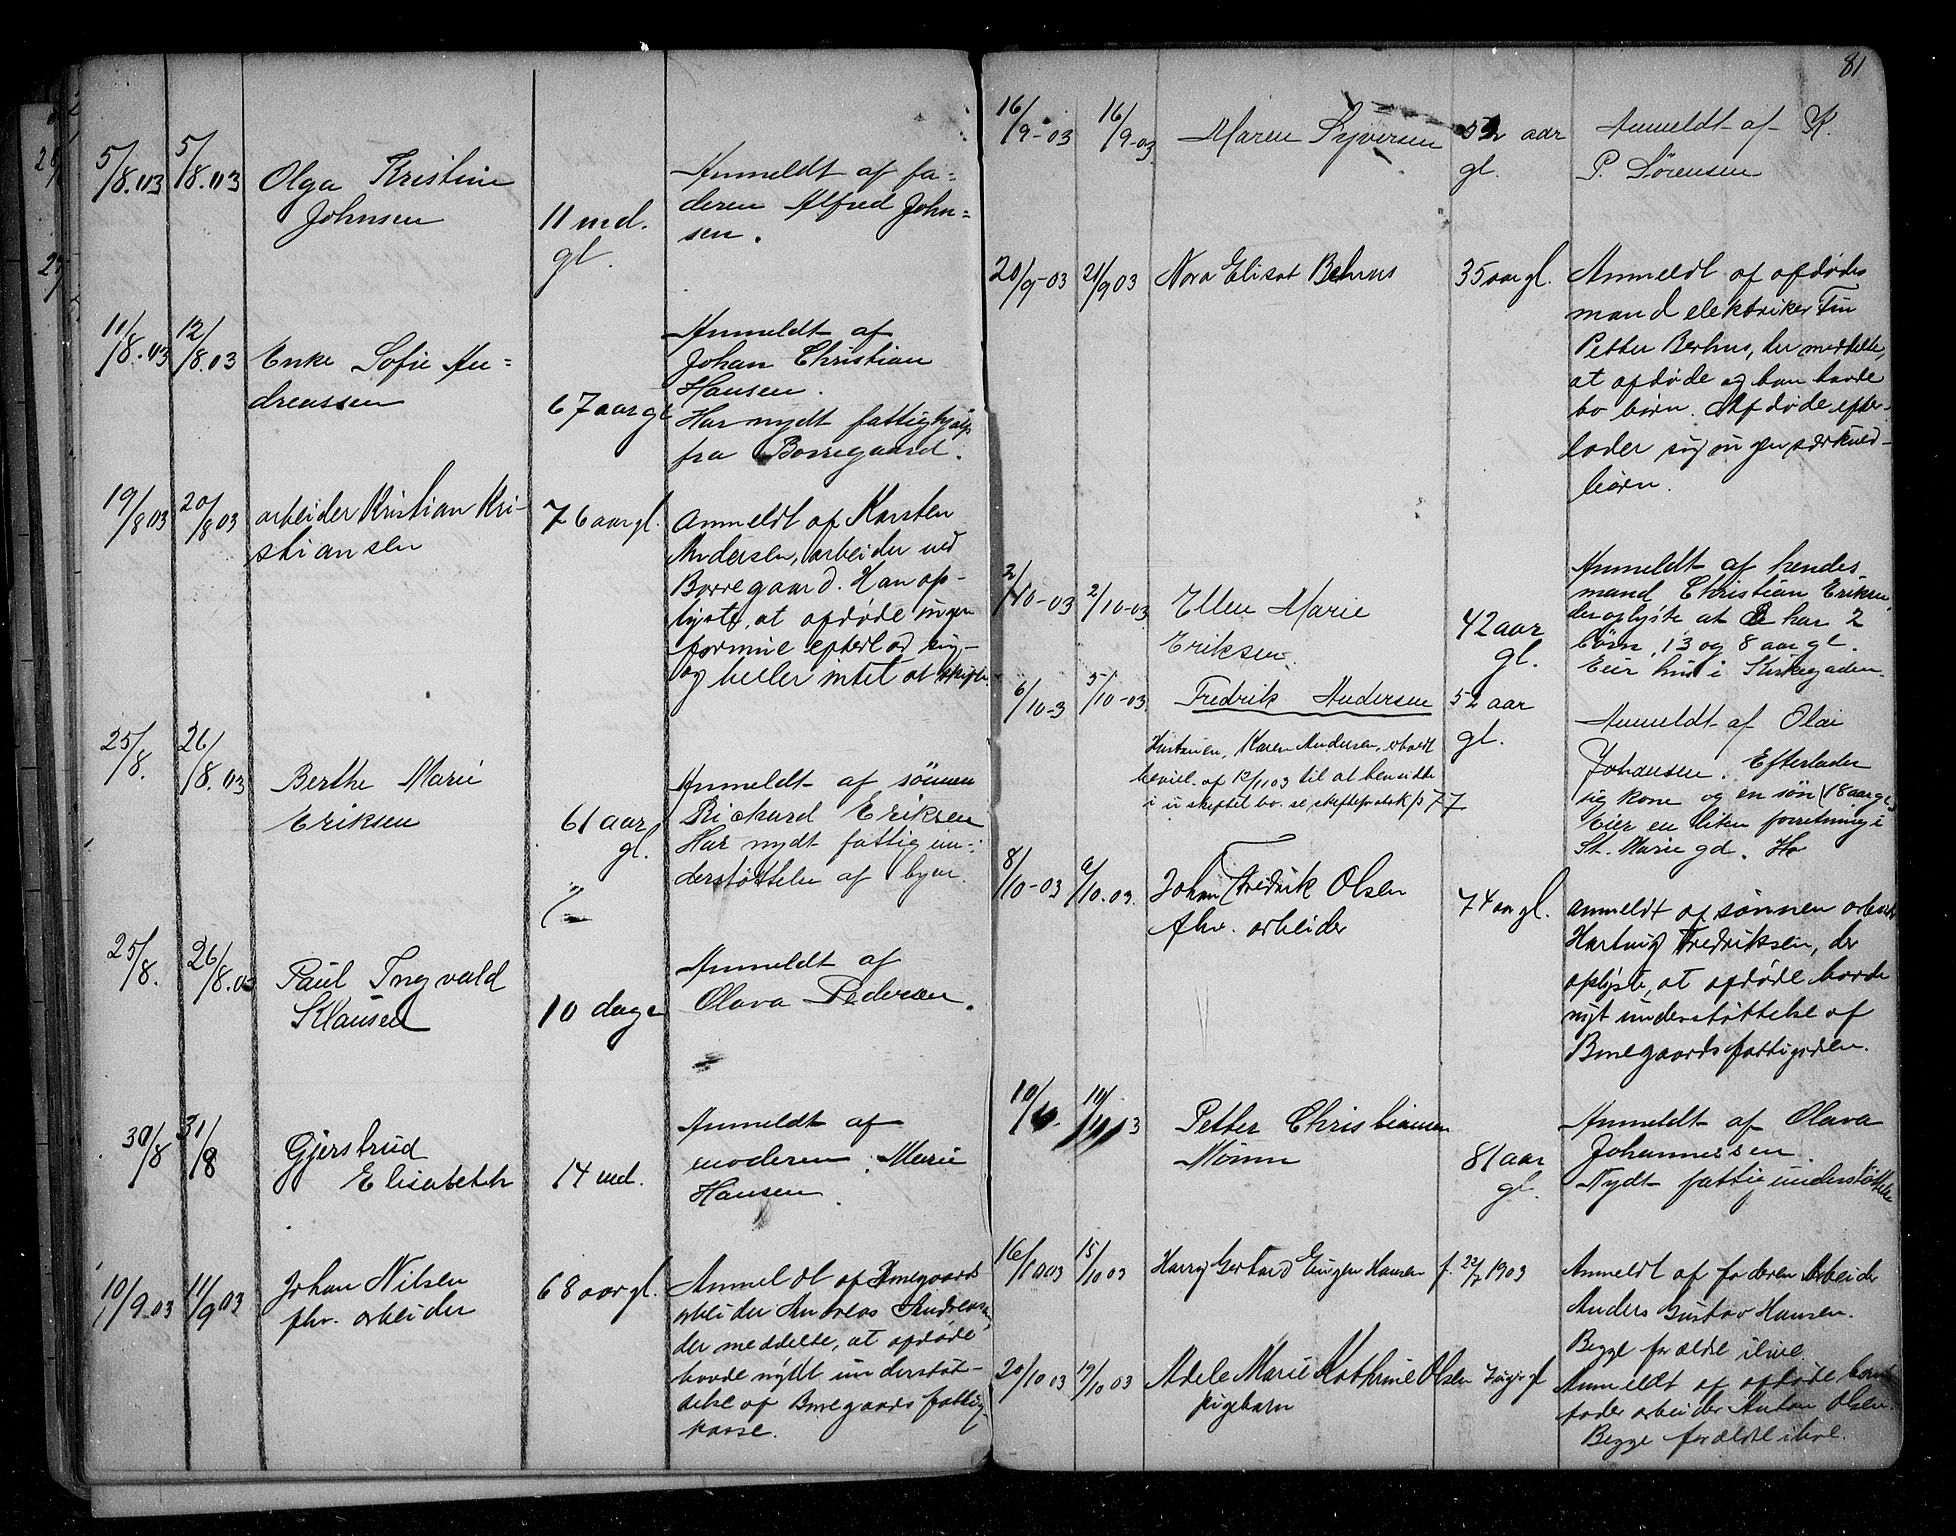 5/8.03 5/8.03 Olga Kristine
Johnsen
11 md.
gl.
Anmeldt af fa-
deren Alfred John-
sen.
11/8.03 12/8.03 Enke Sofie An-
dreassen
67 aar gl
Anmeldt af
Johan Christian
Hansen.
Har nydt fattighjælp
fra Borregaard.
19/8 03 20/8 03 arbeider Kristian Kri-
stiansen
76 aar gl.
Anmeldt af Karsten
Andersen, arbeider ved
Borregaard. Han op-
lyste, at afdøde ingen
formue efterlod sig,
og heller intet at skifte.
25/8. 26/8.03 Berthe Marie
Eriksen
61 aar
gl.
Anmeldt af sønnen
Richard Eriksen
Har nydt fattigun-
derstøttelse af byen.
25/8. 26/8.03 Paul Ingvald
Klausen
10 dage
Anmeldt af
Olava Pedersen.
30/8 31/8 Gjerstrud
Elisabeth
14 md.
Anmeldt af
moderen Marie
Hansen.
10/9.03 11/9 03 Johan Nilsen
fhv. arbeider
68 aar gl.
Anmeldt af Borregaards
arbeider Andreas Andreasen,
der meddelte, at afdøde
havde nydt understøt-
telse af Borregaards fattig-
kasse.
81
16/9-03 16/9-03 Maren Syversen
52 aar
gl.
Anmeldt af K.
P. Sørensen
20/9-03 21/9 03 Nora Elisat
35 aar gl.
Anmeldt af afdødes
mand elektriker Finn
Petter der meddelte,
at afdøde og han havde
to børn. Afdøde efter-
lader sig ingen særkuld-
børn.
2/10-03 2/10-03 Ellen Marie
Eriksen.
42 aar
gl.
Anmeldt af hendes
mand Christian Eriksen,
der oplyste at de har 2
børn, 13 og 8 aar gl.
Eier hus i Kirkegaden.
6/10-3 5/10-03 Fredrik Andersen
52 aar
gl.
Hustruen, Karen Andersen, erholdt
bevil. af 12/11 03 til at hensidde
i uskiftet bo. se skifteprotok p 77
Anmeldt af Olai
Johansen. Efterlader
sig kone og en søn (18 aar gl)
Eier en liten forretning i
St. Marie gd.
8/10-03 6/10.03. Johan Fredrik Olsen
fhv. arbeider
74 aar gl.
Anmeldt af sønnen arbeider
Hartvig Fredriksen, der
oplyste, at afdøde havde
nyt understøttelse af
Borregaards fattigvæsen.
10/10. 3 Petter Christiansen
Moum
81 aar
gl.
Anmeldt af Olava
Johannessen.
Nydt fattigunderstøttelse
16/10 03 15/10 03 Harry Gerhard Eugen Hansen f. 22/7 1903
Anmeldt af faderen arbeider
Anders Gustav Hansen.
Begge forældre ilive
20/10 03 19/10 03 Adele Marie Kathrine Olsen
pigebarn
Anmeldt af afdøde barns
fader arbeider Anton Olsen.
Begge forældre ilive.